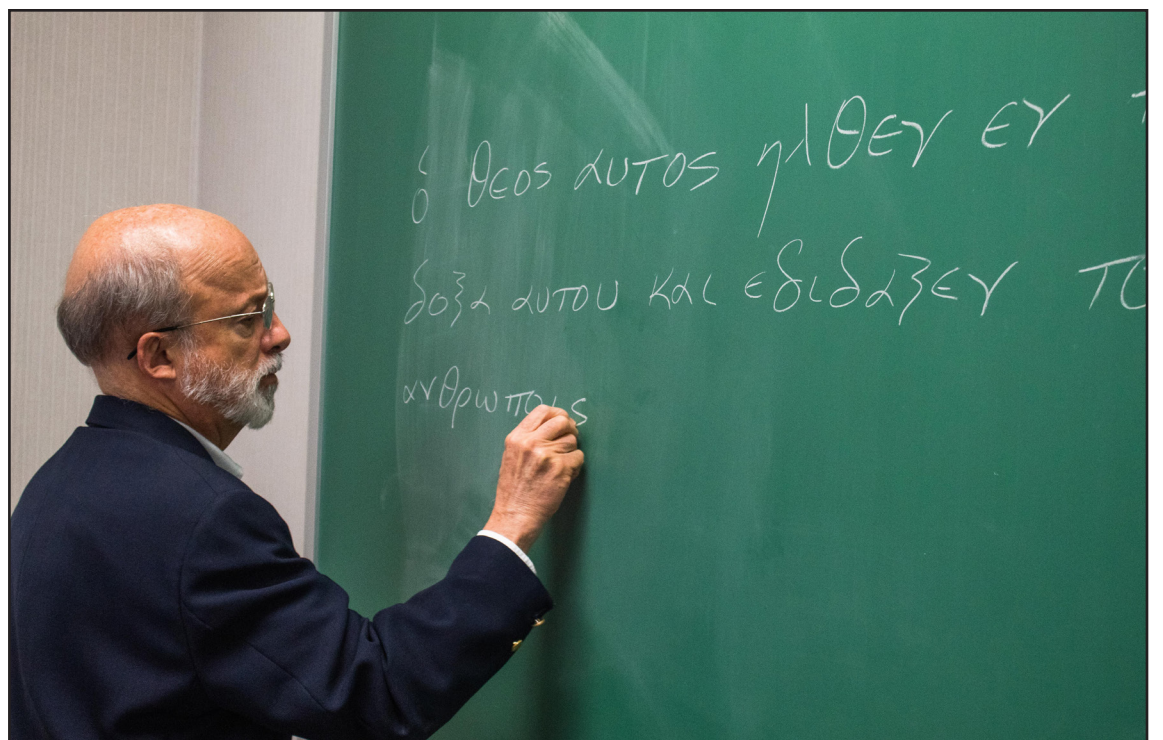 ὁ θεος αυτος ηλθεν εν
δοξα αυτου και εδιδαξεν το
ανθρωποις